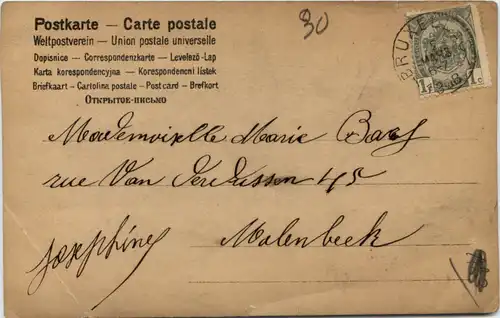 Postkarte - Carte postale
Weltpostverein - Union postale universelle
Dopisnice - Correspondenzkarte - Levelező-Lap
Karta korespondencyjna - Korespondenčni lístek
Briefkaart - Cartolina postale - Postcard - Brefkort
Открытое-письмо
30
BRUXE
1 1
Mademoiselle Marie Baas
rue Van 45
Molenbeek
Joséphine